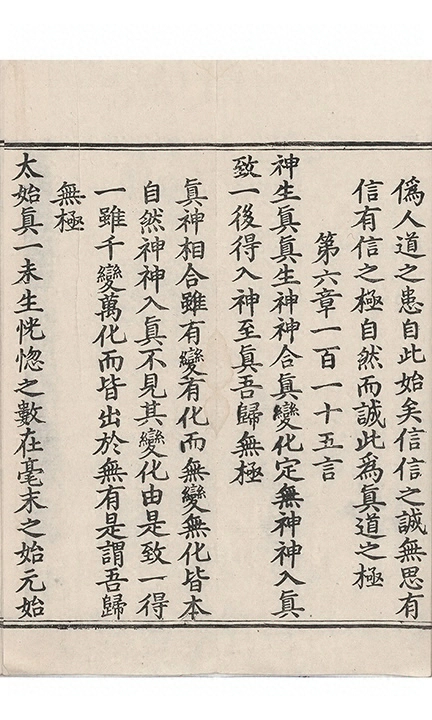 僞人道之患自此始矣信信之誠無思有
信有信之極自然而誠此爲眞道之極
第六章一百一十五言
神生眞眞生神神合眞變化定無神神入眞
致一後得入神至眞吾歸無極
眞神相合雖有變有化而無變無化皆本
自然神神入眞不見其變化由是致一得
一雖千變萬化而皆出於無有是謂吾歸
無極
太始眞一未生恍惚之數在毫末之始元始